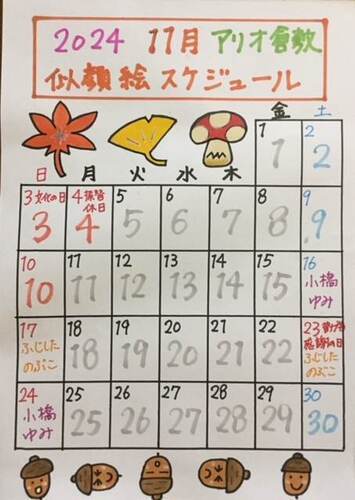 2024 11月 アリオ倉敷
似顔絵 スケジュール
日 月 火 水 木 金 土
1 1 2 2
3 文化の日 3 4 振替休日 4 5 5 6 6 7 7 8 8 9 9
10 10 11 11 12 12 13 13 14 14 15 15 16 小橋ゆみ
17 ふじしたのぶこ 18 18 19 19 20 20 21 21 22 22 23 勤労感謝の日 ふじしたのぶこ
24 小橋ゆみ 25 25 26 26 27 27 28 28 29 29 30 30